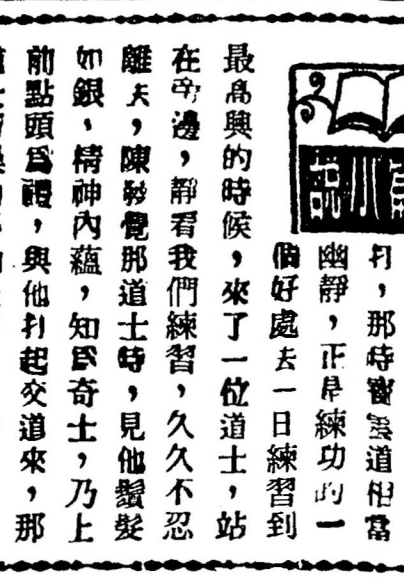 小說
打，那時寶雲道相當
幽靜，正是練功的一
個好處去一日練習到
最高興的時候，來了一位道士，站
在旁邊，靜看我們練習，久久不忍
離去，陳發覺那道士時，見他鬚髮
如銀，精神內蘊，知爲奇士，乃上
前點頭爲禮，與他打起交道來，那